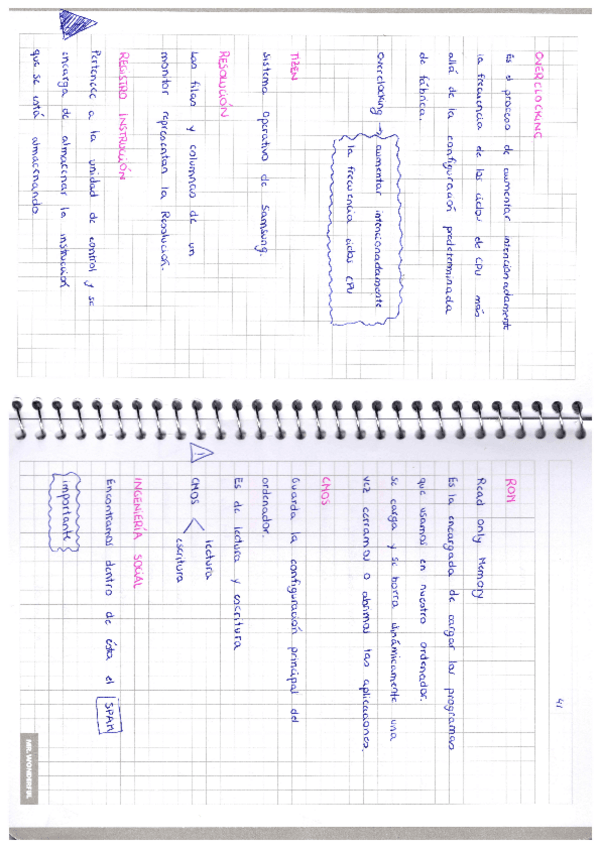 OVERCLOCKING
Es el proceso de aumentar intencionadamente
la frecuencia de los ciclos de CPU más
allá de la configuración predeterminada
de fábrica.
Overclocking → aumentar intencionadamente
la frecuencia ciclos CPU
TIZEN
Sistema operativo de Samsung.
RESOLUCIÓN
Las filas y columnas de un
monitor representan la Resolución.
REGISTRO INSTRUCCIÓN
Pertenece a la unidad de control y se
encarga de almacenar la instrucción
que se está almacenando.
41
ROM
Read only Memory
Es la encargada de cargar los programas
que usamos en nuestro ordenador.
se carga y se borra dinámicamente una
vez cerramos o abrimos las aplicaciones.
CMOS
Guarda la configuración principal del
ordenador.
Es de lectura y escritura
CMOS < lectura
escritura
INGENIERÍA SOCIAL
Encontramos dentro de ésta el SPAM
importante
MR. WONDERFUL